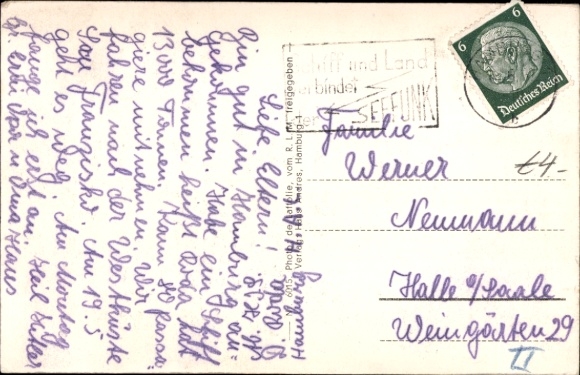 Hamburg
Liebe Eltern!
Bin gut in Hamburg an-
gekommen. Habe ein Schiff
bekommen heißt
13000 Tonnen. Kann 80 Passa-
giere mitnehmen. Wir
fahren nach der Westküste
San Franzisko. Am 19.5
geht es weg. Am Montag
fange ich erst an. Heil Hitler
Hans
Photo
freigegeben
Verlag Hans Andres, Hamburg 1
Schiff und Land
verbindet
der SEEFUNK
6 6
Deutsches Reich
Familie
Werner
Neumann
Halle a/Saale
Weingärten 29
II